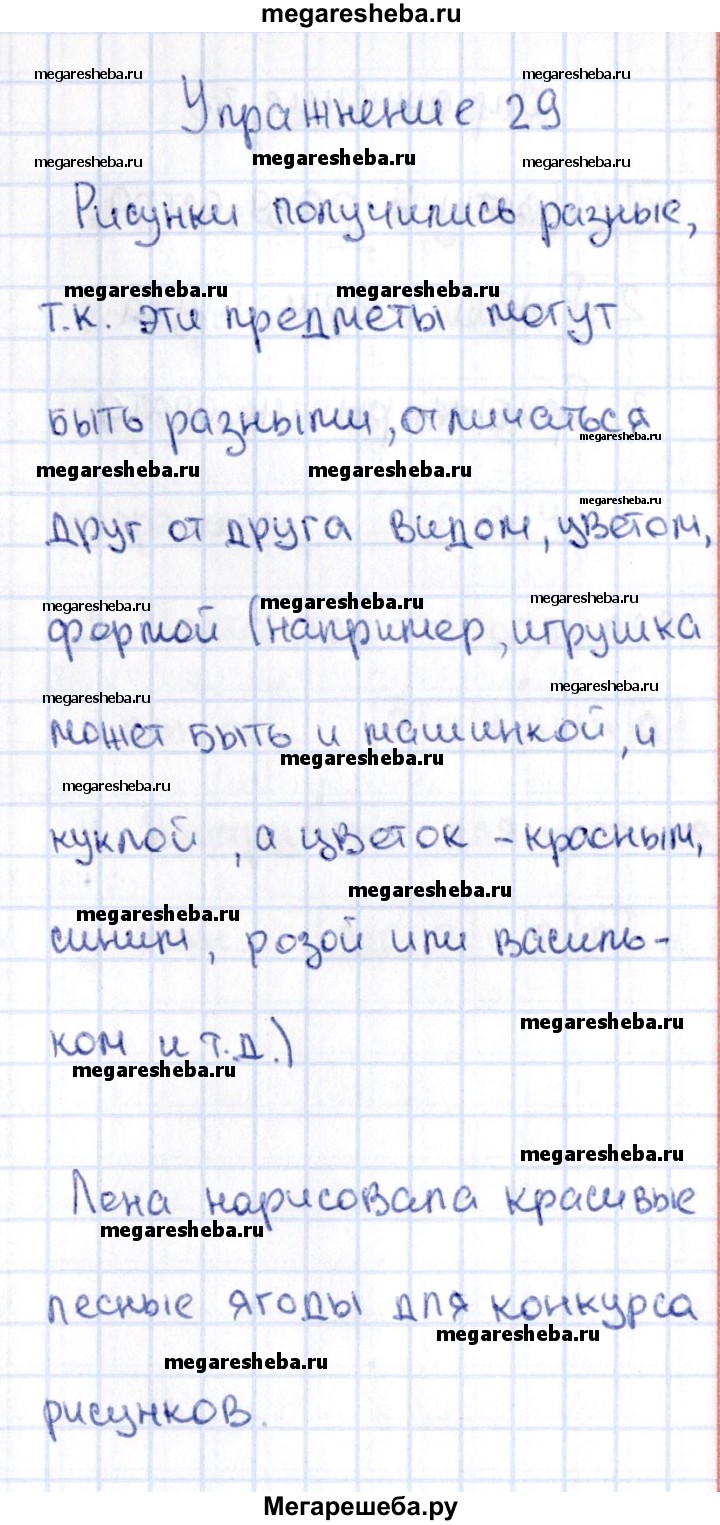 megaresheba.ru
megaresheba.ru megaresheba.ru
Упражнение 29
megaresheba.ru megaresheba.ru megaresheba.ru
Рисунки получились разные,
megaresheba.ru megaresheba.ru
т.к. эти предметы могут
быть разными, отличаться
megaresheba.ru
megaresheba.ru megaresheba.ru
megaresheba.ru
друг от друга видом, цветом,
megaresheba.ru megaresheba.ru megaresheba.ru
формой (например, игрушка
megaresheba.ru
megaresheba.ru
может быть и машинкой, и
megaresheba.ru
megaresheba.ru
куклой, а цветок – красным,
megaresheba.ru
megaresheba.ru
синим, розой или василь-
megaresheba.ru
ком и т.д.)
megaresheba.ru
megaresheba.ru
Лена нарисовала красивые
megaresheba.ru
лесные ягоды для конкурса
megaresheba.ru
megaresheba.ru
рисунков.
Мегарешеба.ру